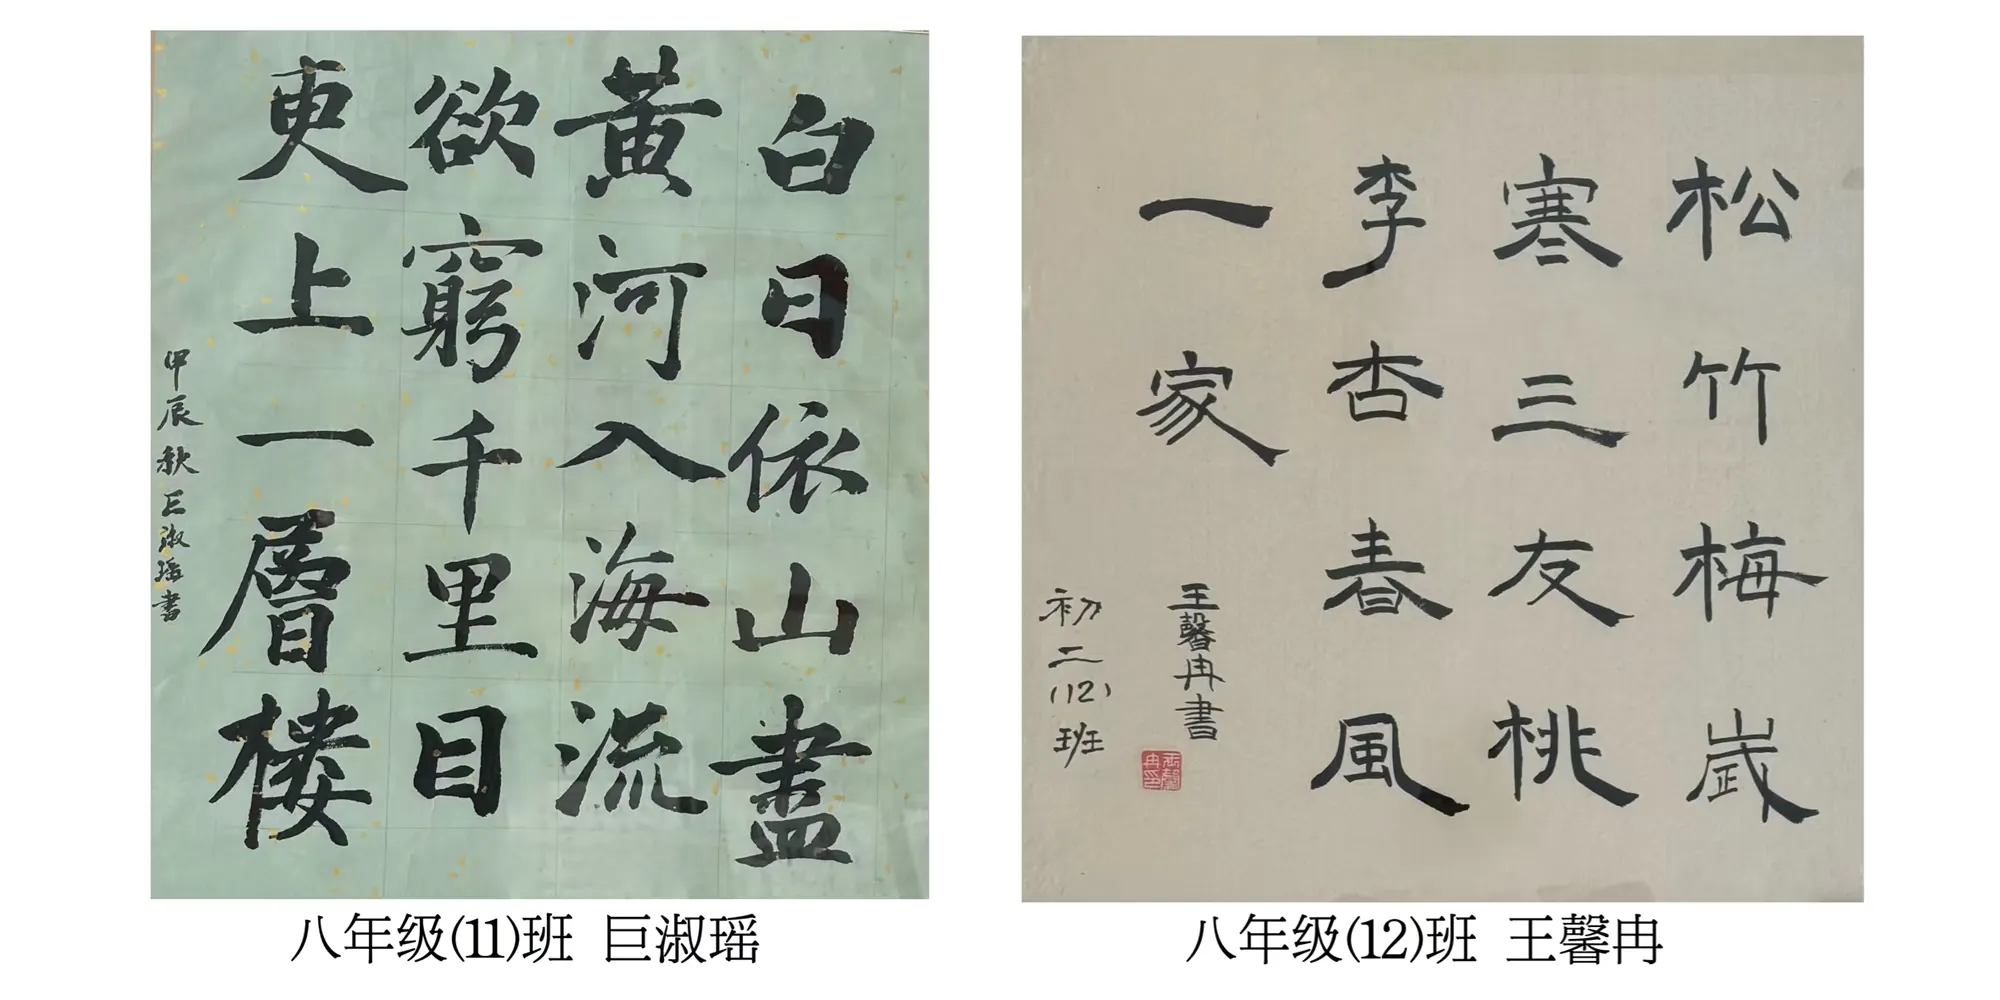 白日依山盡
黃河入海流
欲窮千里目
更上一層樓
甲辰秋巨淑瑶書
松竹梅歲
寒三友桃
李杏春風
一家
王馨冉書
初二(12)班
八年级(11)班 巨淑瑶
八年级(12)班 王馨冉